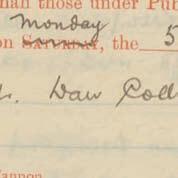 than those under Pub
Monday
on SATURDAY, the 5
Daw Coll